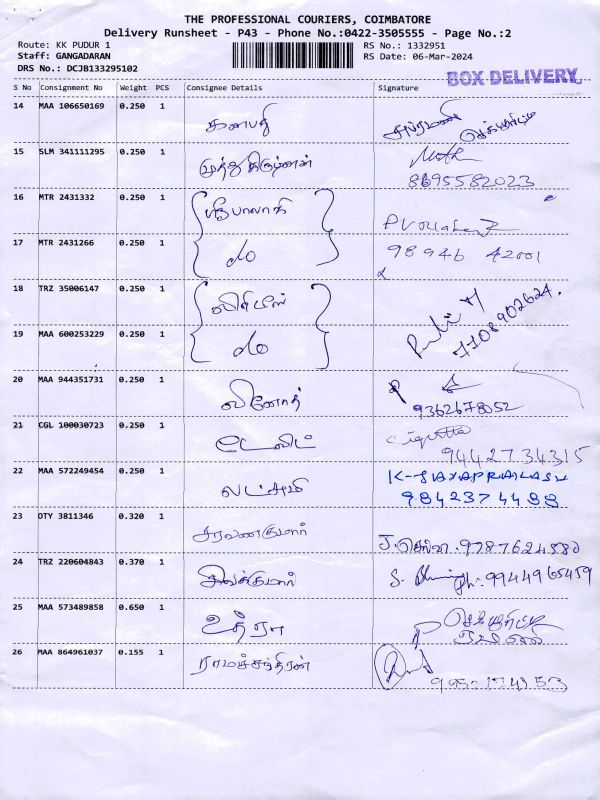 THE PROFESSIONAL COURIERS, COIMBATORE
Delivery Runsheet - P43 - Phone No.:0422-3505555 - Page No.:2
Route: KK PUDUR 1
RS No.: 1332951
Staff: GANGADARAN
RS Date: 06-Mar-2024
DRS No.: DCJB133295102
BOX DELIVERY
S No Consignment No Weight PCS Consignee Details Signature
14 MAA 106650169 0.250 1 கணபதி
15 SLM 341111295 0.250 1
8695582023
16 MTR 2431332 0.250 1 ஸ்ரீபாலாஜி
17 MTR 2431266 0.250 1 do 98946 42001
18 TRZ 35006147 0.250 1
7708902624.
19 MAA 600253229 0.250 1 do
20 MAA 944351731 0.250 1 வினோத்
9362678052
21 CGL 100030723 0.250 1 டேவிட் 9442734315
22 MAA 572249454 0.250 1 லட்சுமி K-JAYAPRAKASH
9842374488
23 OTY 3811346 0.320 1 சரவணகுமார் 9787624580
24 TRZ 220604843 0.370 1 சிவக்குமார் Ph: 9944965459
25 MAA 573489858 0.650 1 உத்ரா
26 MAA 864961037 0.155 1 ராமச்சந்திரன்